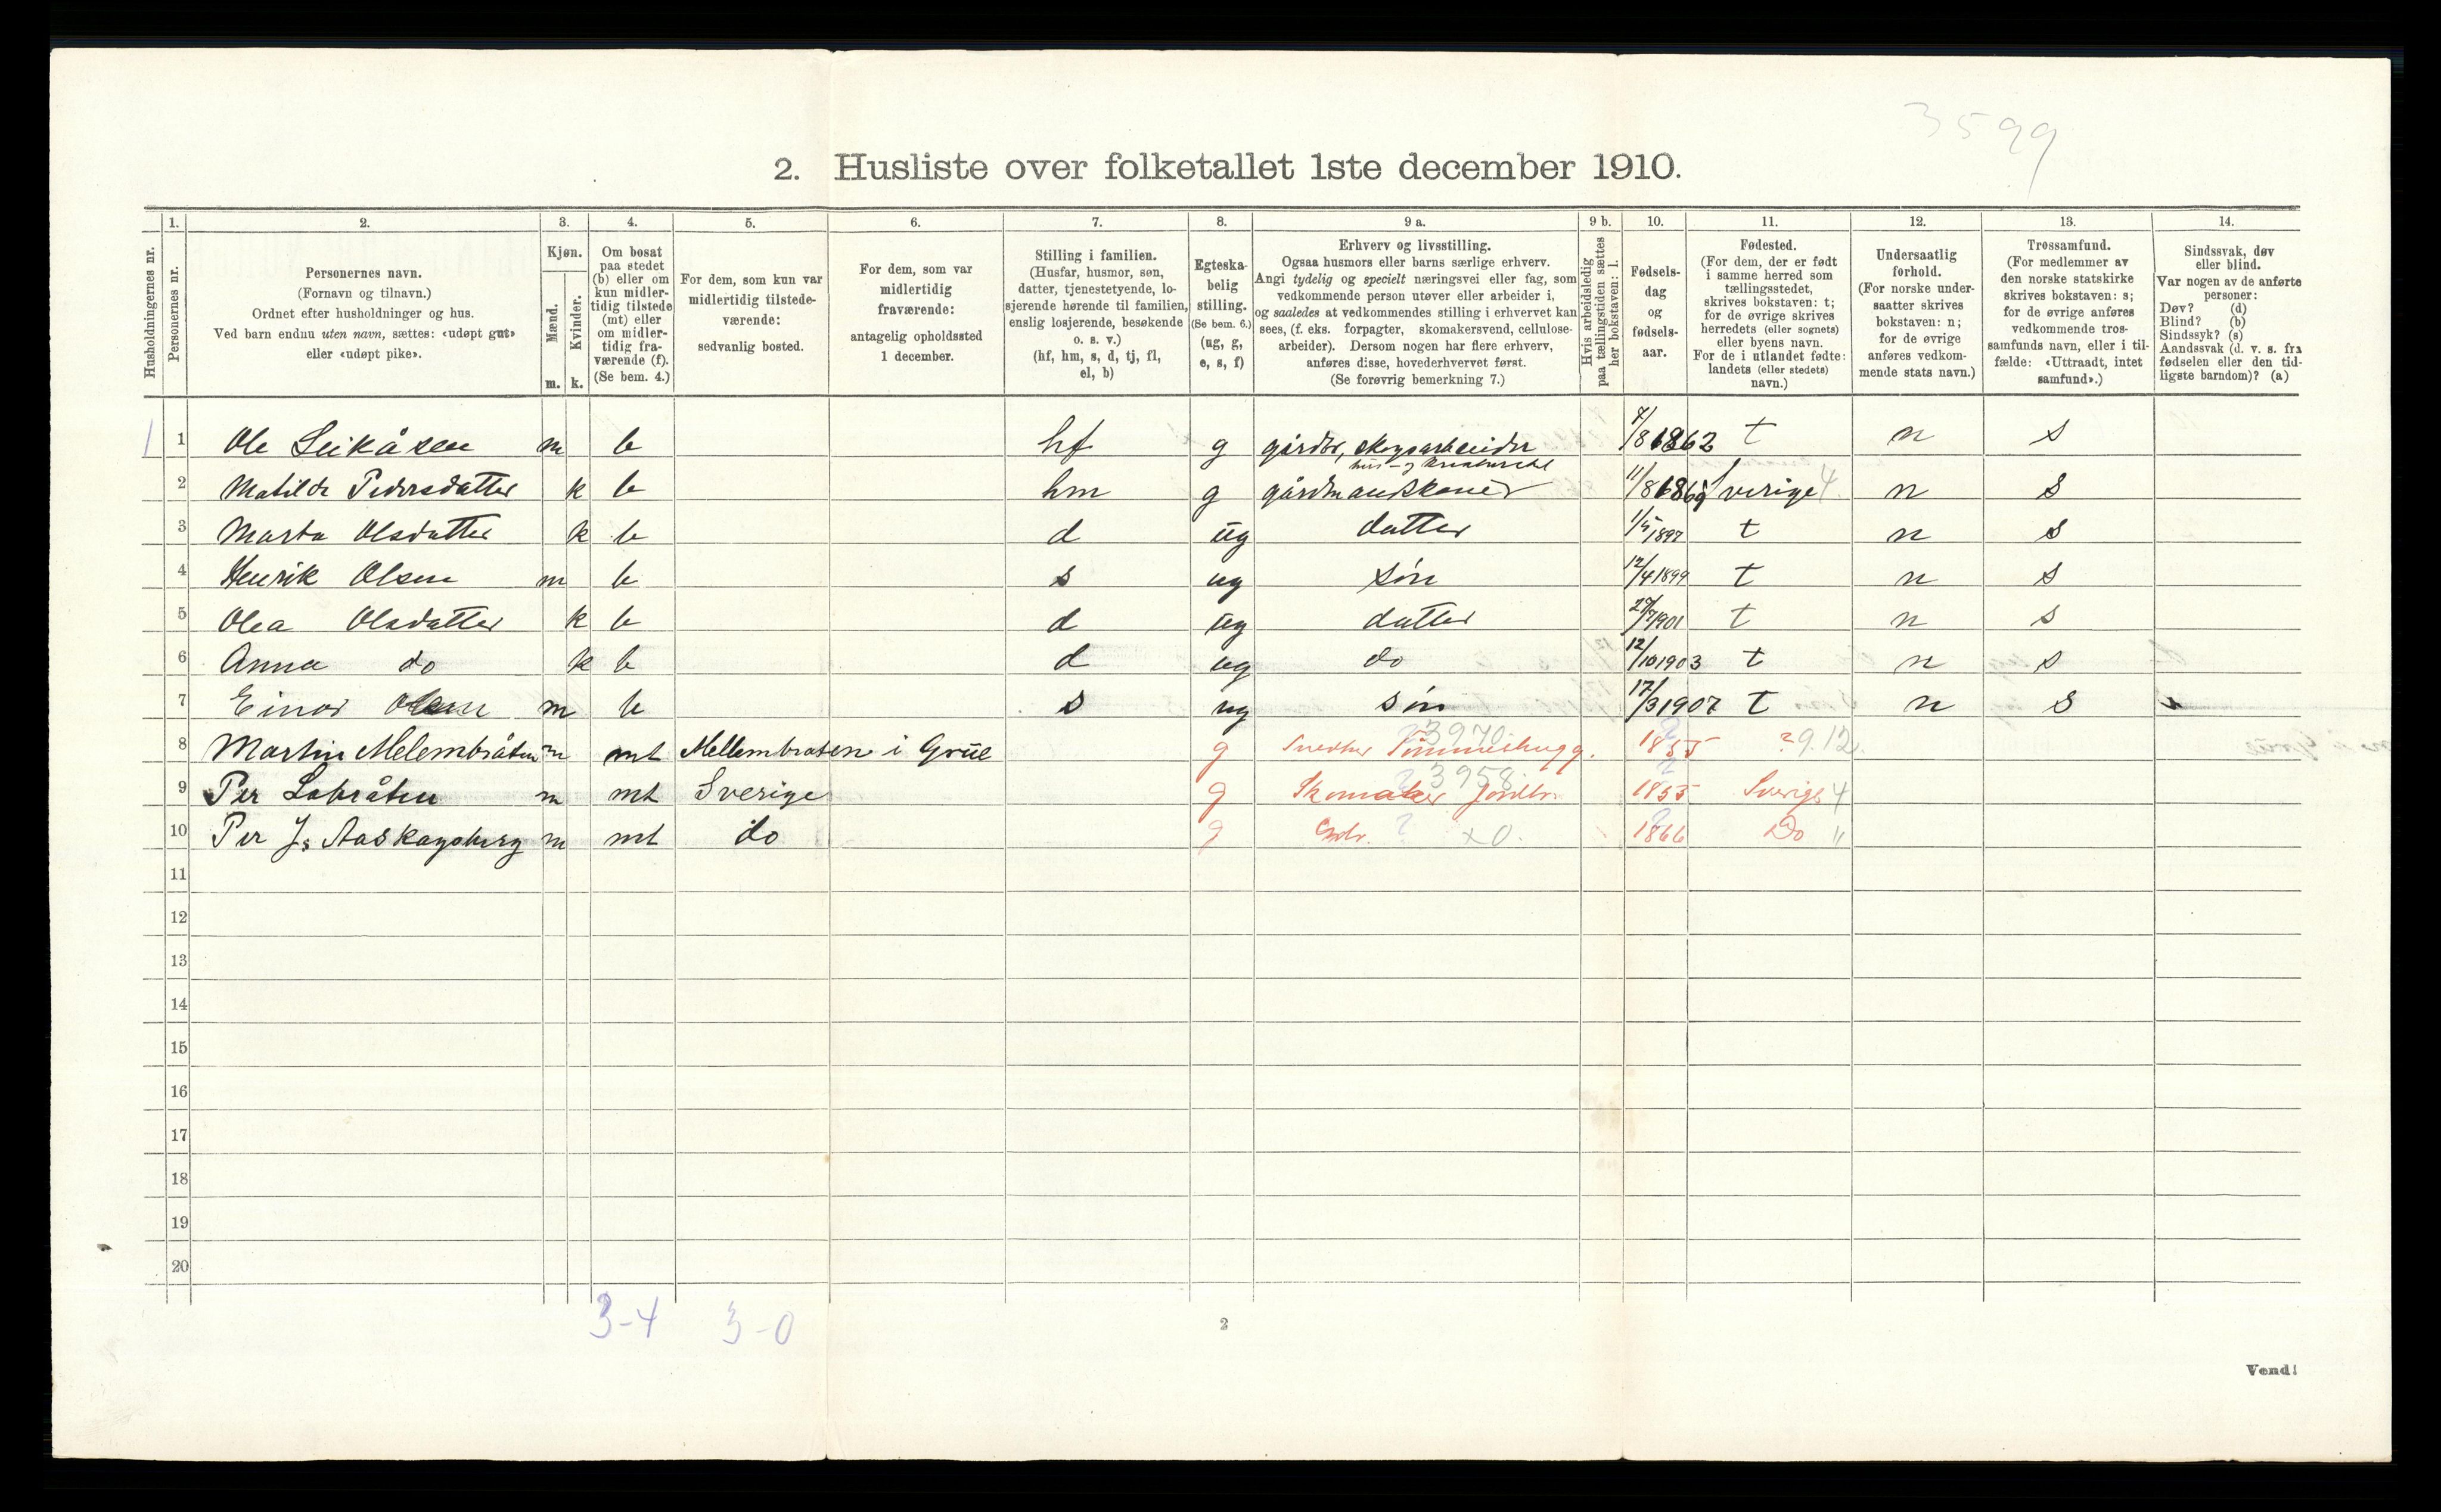 3599
2. Husliste over folketallet 1ste december 1910.
1. 2. 3. 4. 5. 6. 7. 8. 9 a. 9 b. 10. 11. 12. 13. 14.
Husholdningernes nr.
Personernes nr.
Personernes navn.
(Fornavn og tilnavn.)
Ordnet efter husholdninger og hus.
Ved barn endnu uten navn, sættes: «udøpt gut»
eller «udøpt pike».
Kjøn.
Mænd.
Kvinder.
m. k.
Om bosat
paa stedet
(b) eller om
kun midler-
tidig tilstede
(mt) eller
om midler-
tidig fra-
værende (f).
(Se bem. 4.)
For dem, som kun var
midlertidig tilstede-
værende:
sedvanlig bosted.
For dem, som var
midlertidig
fraværende:
antagelig opholdssted
1 december.
Stilling i familien.
(Husfar, husmor, søn,
datter, tjenestetyende, lo-
sjerende hørende til familien,
enslig losjerende, besøkende
o. s. v.)
(hf, hm, s, d, tj, fl,
el, b)
Egteska-
belig
stilling.
(Se bem. 6.)
(ug, g,
e, s, f)
Erhverv og livsstilling.
Ogsaa husmors eller barns særlige erhverv.
Angi tydelig og specielt næringsvei eller fag, som
vedkommende person utøver eller arbeider i,
og saaledes at vedkommendes stilling i erhvervet kan
sees, (f. eks. forpagter, skomakersvend, cellulose-
arbeider). Dersom nogen har flere erhverv,
anføres disse, hovederhvervet først.
(Se forøvrig bemerkning 7.)
Hvis arbeidsledig
paa tællingstiden sættes
her bokstaven: l.
Fødsels-
dag
og
fødsels-
aar.
Fødested.
(For dem, der er født
i samme herred som
tællingsstedet,
skrives bokstaven: t;
for de øvrige skrives
herredets (eller sognets)
eller byens navn.
For de i utlandet fødte:
landets (eller stedets)
navn.)
Undersaatlig
forhold.
(For norske under-
saatter skrives
bokstaven: n;
for de øvrige
anføres vedkom-
mende stats navn.)
Trossamfund.
(For medlemmer av
den norske statskirke
skrives bokstaven: s;
for de øvrige anføres
vedkommende tros-
samfunds navn, eller i til-
fælde: «Uttraadt, intet
samfund».)
Sindssvak, døv
eller blind.
Var nogen av de anførte
personer:
Døv? (d)
Blind? (b)
Sindssyk? (s)
Aandssvak (d. v. s. fra
fødselen eller den tid-
ligste barndom)? (a)
1 1 Ole Leikåsen m b hf g gårdbr, skogsarbeider 1862 t n s
2 Matilde Pedersdatter k b hm g gårdmandskone 11/8 1869 Sverige 4 n s
3 Marta Olsdatter k b d ug datter 1/5 1897 t n s
4 Henrik Olsen m b s ug søn 12/4 1899 t n s
5 Olea Olsdatter k b d ug datter 27/7 1901 t n s
6 Anna do k b d ug do 12/10 1903 t n s
7 Einar Olsen m b s ug søn 17/3 1907 t n s
8 Martin Melembråten m mt Mellembraten i Grue g Snedker Tømmerhugg. 3970 1855 ? 9.12.
9 Per Lobråten m mt Sverige g Skomaker Jordbr. 3958 1855 Sverige 4
10 Per J. Aaskagsberg m mt do g Gdbr. ? x0. 1866 Do "
11
12
13
14
15
16
17
18
19
20
3-4 3-0
2
Vend!